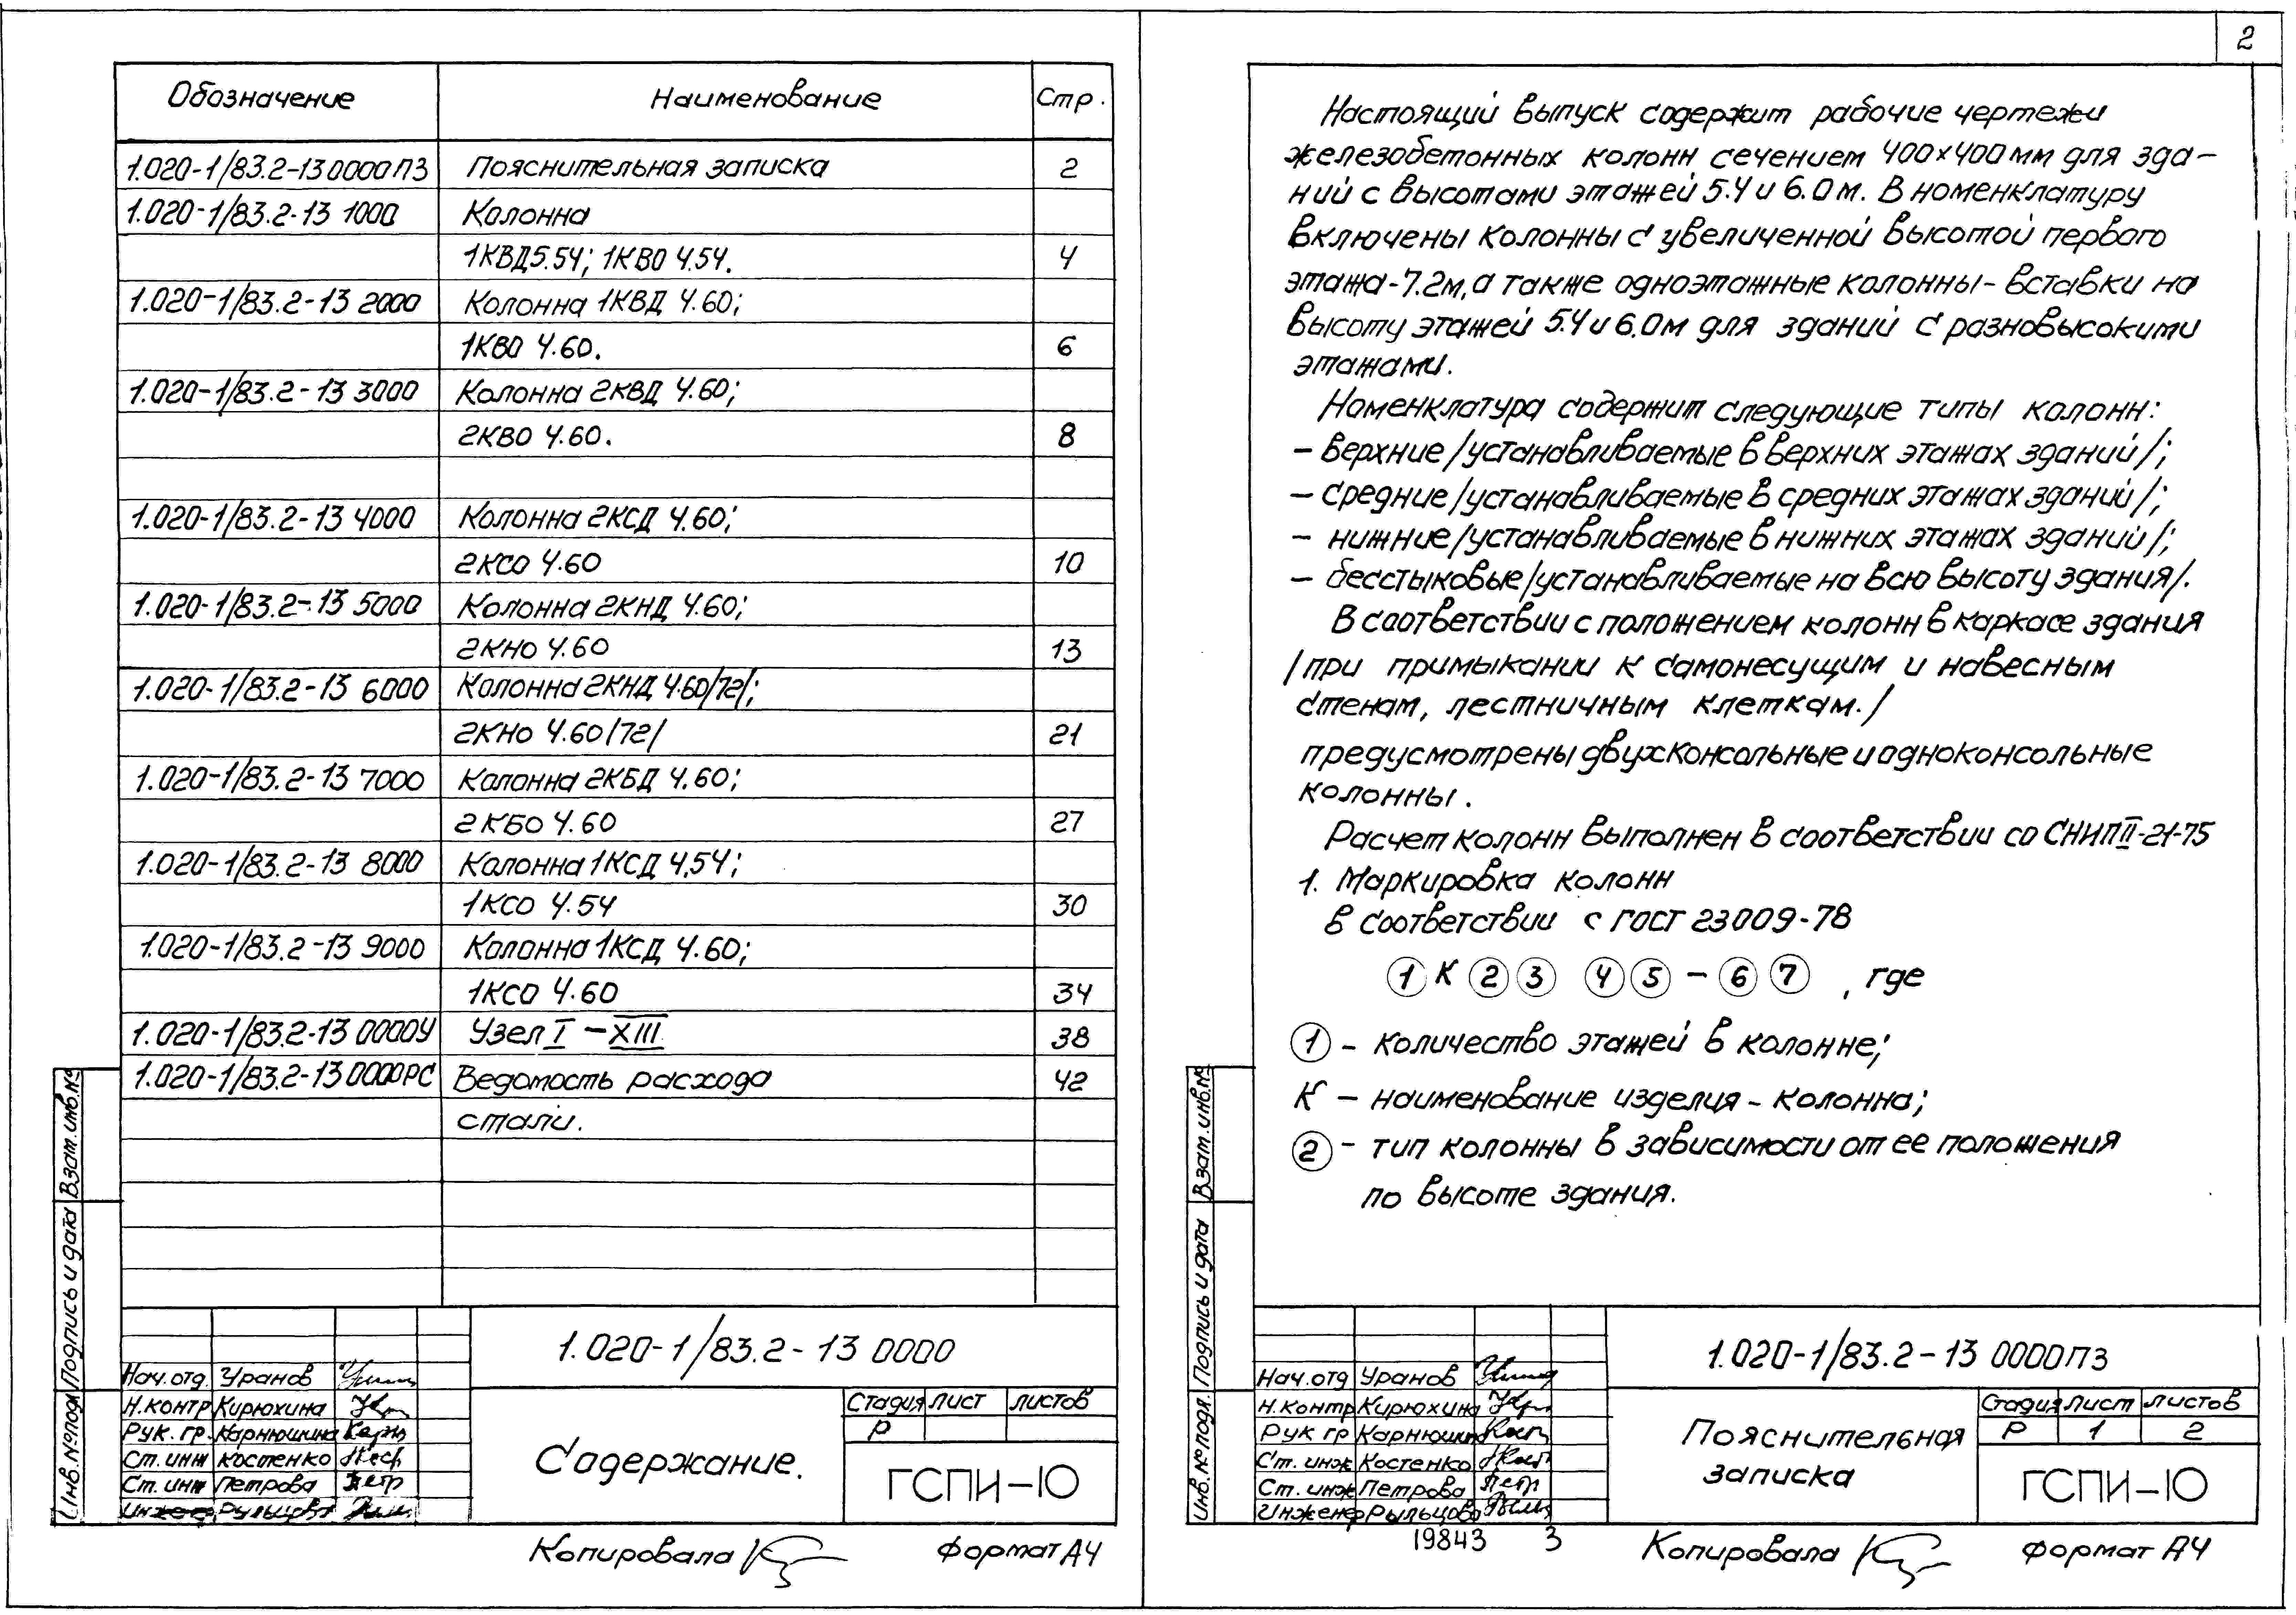 Обозначение Наименование Стр.
1.020-1/83.2-13 0000ПЗ Пояснительная записка 2
1.020-1/83.2-13 1000 Колонна
1КВД5.54; 1КВО 4.54. 4
1.020-1/83.2-13 2000 Колонна 1КВД 4.60;
1КВО 4.60. 6
1.020-1/83.2-13 3000 Колонна 2КВД 4.60;
2КВО 4.60. 8
1.020-1/83.2-13 4000 Колонна 2КСД 4.60;
2КСО 4.60 10
1.020-1/83.2-13 5000 Колонна 2КНД 4.60;
2КНО 4.60 13
1.020-1/83.2-13 6000 Колонна 2КНД 4.60/72/;
2КНО 4.60/72/ 21
1.020-1/83.2-13 7000 Колонна 2КБД 4.60;
2КБО 4.60 27
1.020-1/83.2-13 8000 Колонна 1КСД 4.54;
1КСО 4.54 30
1.020-1/83.2-13 9000 Колонна 1КСД 4.60;
1КСО 4.60 34
1.020-1/83.2-13 0000У Узел I – XIII 38
1.020-1/83.2-13 0000РС Ведомость расхода 42
стали.
Взам.инв.№
Подпись и дата
Инв.№подл.
1.020-1/83.2-13 0000
Нач.отд. Уранов
Н.контр Кирюхина
Рук. гр. Карнюшина
Ст.инж Костенко
Ст.инж Петрова
Инжен Рыльцова
Содержание.
Стадия Лист Листов
Р
ГСПИ-10
Копировала Формат А4
2
Настоящий выпуск содержит рабочие чертежи
железобетонных колонн сечением 400×400мм для зда-
ний с высотами этажей 5.4 и 6.0м. В номенклатуру
включены колонны с увеличенной высотой первого
этажа-7.2м, а также одноэтажные колонны-вставки на
высоту этажей 5.4 и 6.0м для зданий с разновысокими
этажами.
Номенклатура содержит следующие типы колонн:
– верхние /устанавливаемые в верхних этажах зданий/;
– средние /устанавливаемые в средних этажах зданий/;
– нижние /устанавливаемые в нижних этажах зданий/;
– бесстыковые /устанавливаемые на всю высоту здания/.
В соответствии с положением колонн в каркасе здания
/при примыкании к самонесущим и навесным
стенам, лестничным клеткам./
предусмотрены двухконсольные и одноконсольные
колонны.
Расчет колонн выполнен в соответствии со СНИП II-21-75
1. Маркировка колонн
в соответствии с ГОСТ 23009-78
① К ② ③ ④ ⑤ – ⑥ ⑦ , где
① – количество этажей в колонне;
К – наименование изделия – колонна;
② – тип колонны в зависимости от ее положения
по высоте здания.
Взам.инв.№
Подпись и дата
Инв.№подл.
1.020-1/83.2-13 0000ПЗ
Нач.отд Уранов
Н.контр Кирюхина
Рук гр Карнюшина
Ст.инж Костенко
Ст.инж Петрова
Инженер Рыльцова
Пояснительная
записка
Стадия Лист Листов
Р 1 2
ГСПИ-10
19843 3
Копировала Формат А4